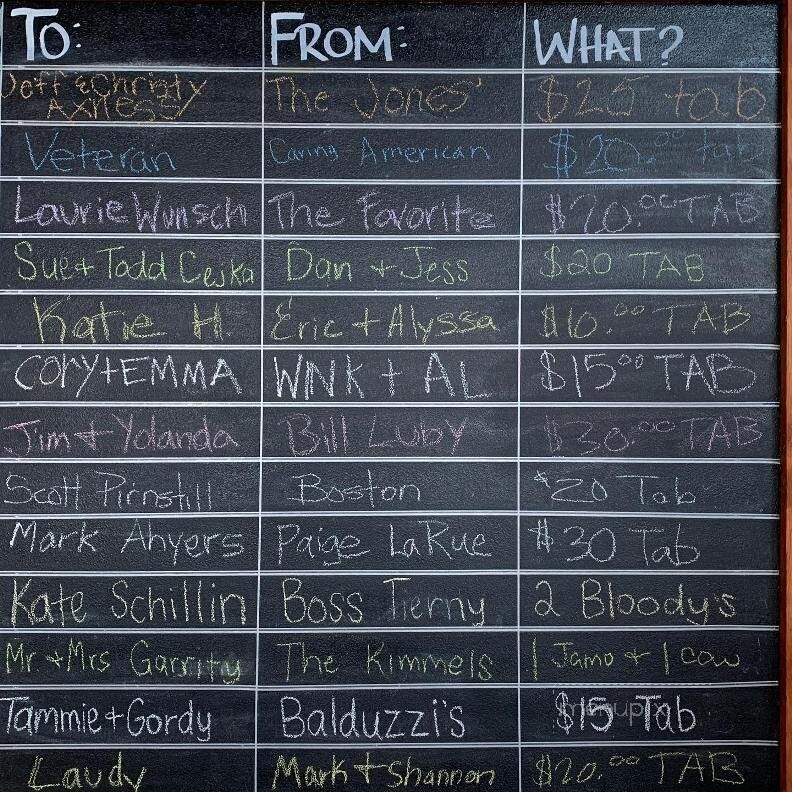 TO: FROM: WHAT?
Jeff & Christy Axness The Jones' $25 tab
Veteran Caring American $20.00 tab
Laurie Wunsch The Favorite $20.00 TAB
Sue + Todd Ceska Dan + Jess $20 TAB
Katie H. Eric + Alyssa $10.00 TAB
CORY + EMMA WNK + AL $15.00 TAB
Jim + Yolanda Bill Luby $30.00 TAB
Scott Pirnstill Boston $20 Tab
Mark Ahyers Paige LaRue $30 Tab
Kate Schillin Boss Tierny 2 Bloody's
Mr + Mrs Garrity The Kimmels 1 Jamo + 1 cow
Tammie + Gordy Balduzzi's $15 Tab
Laudy Mark + Shannon $20.00 TAB